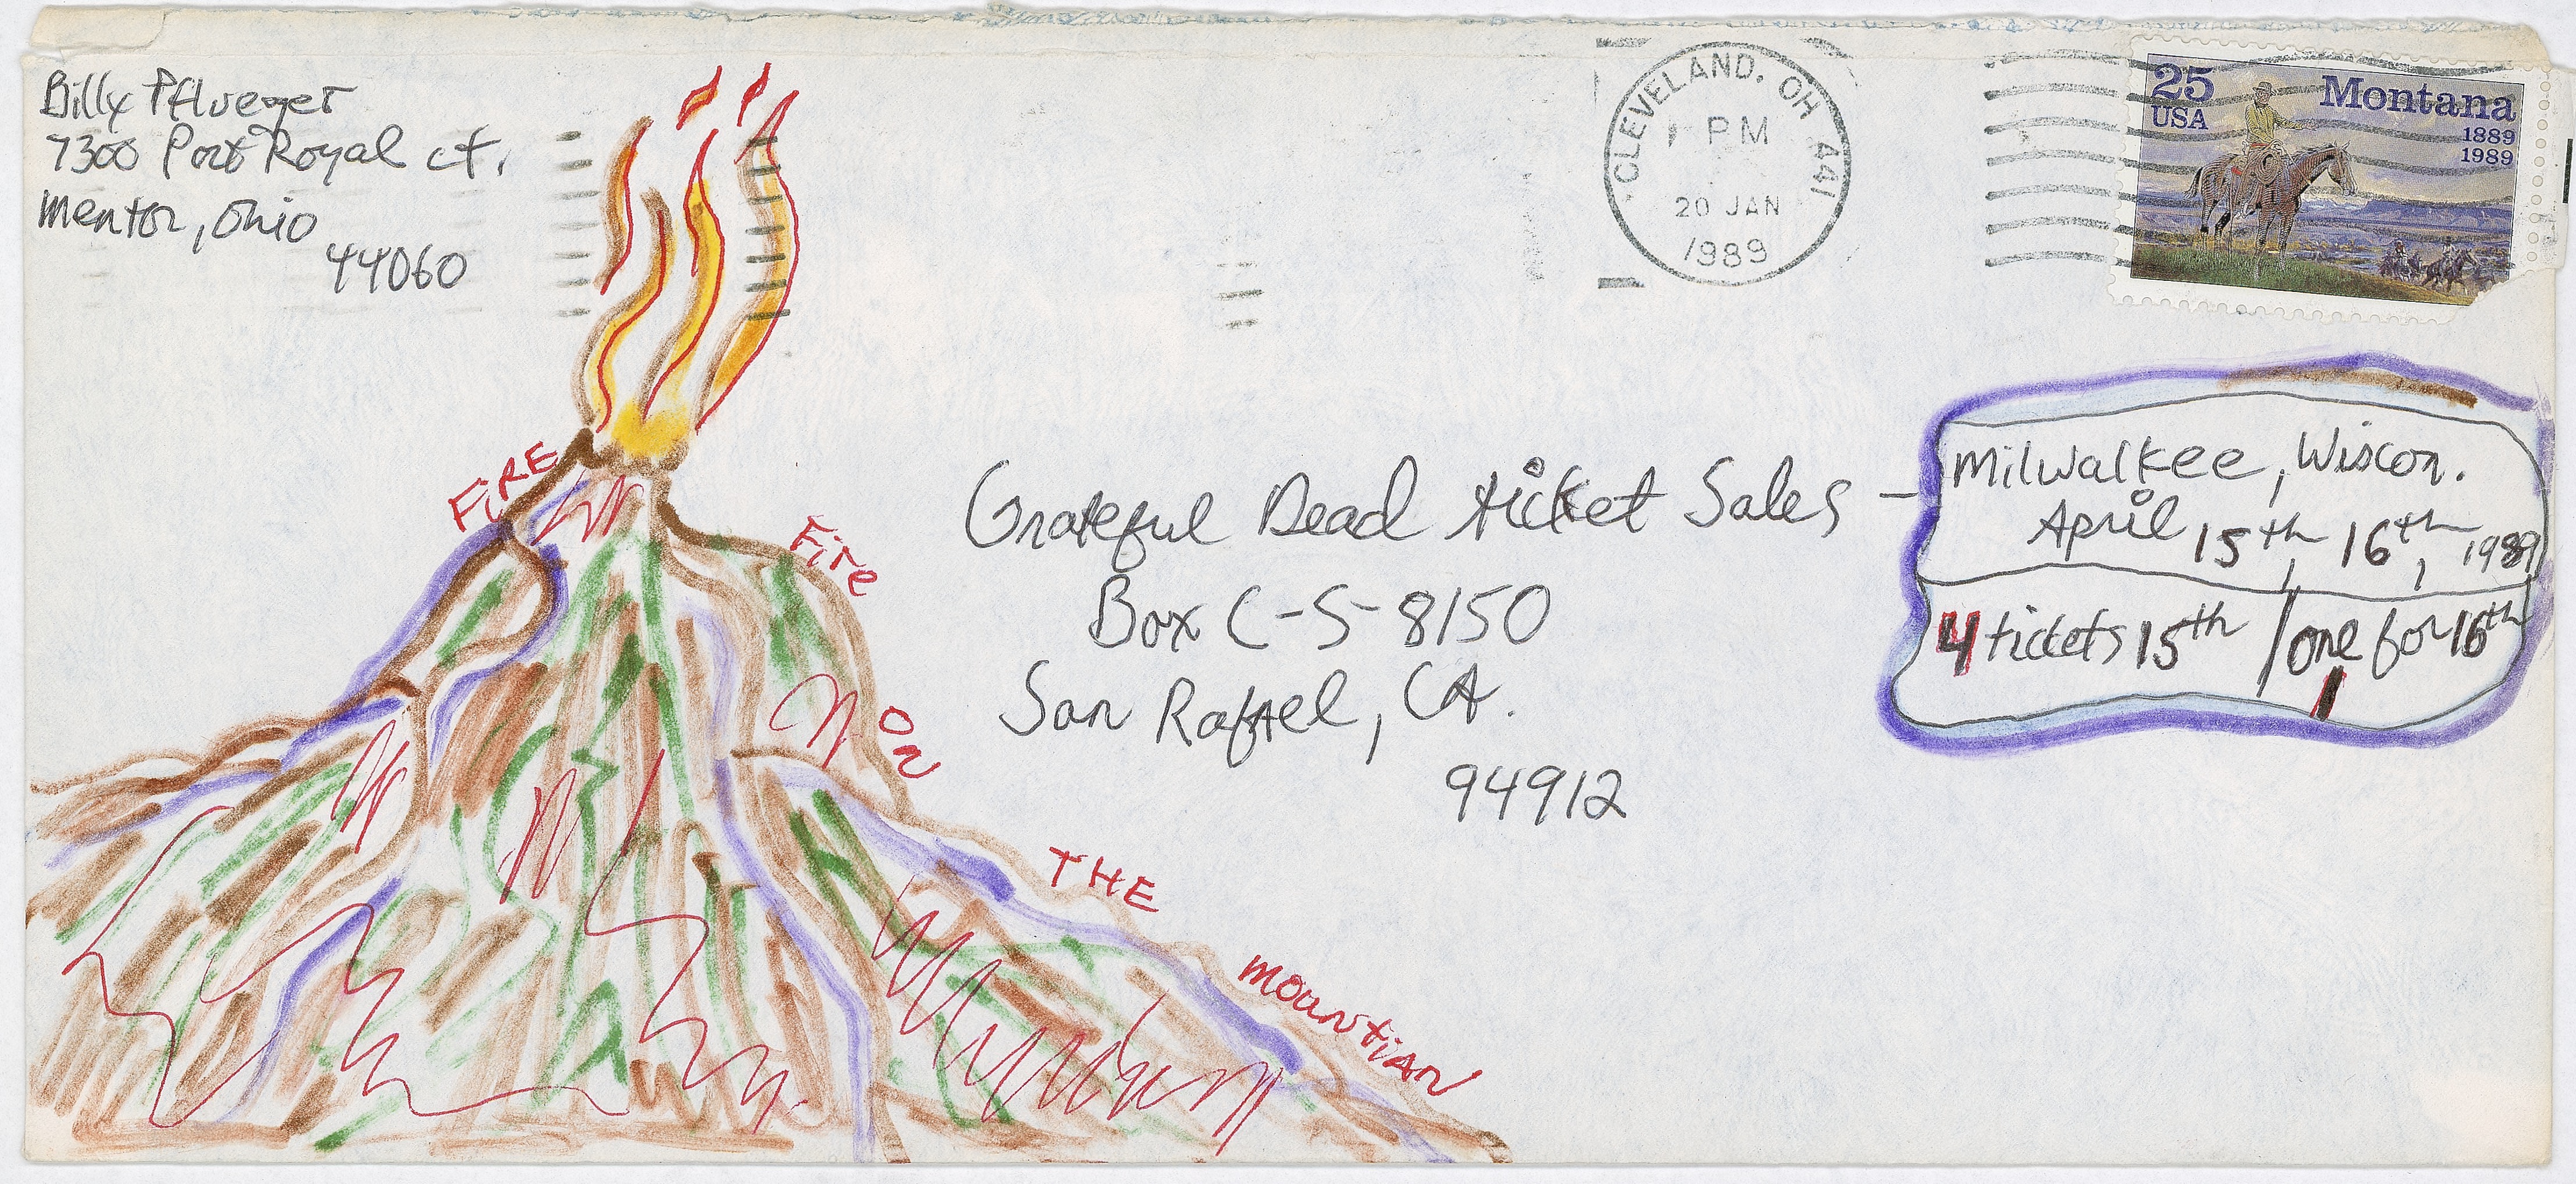 Billy Pflueger
7300 Port Royal ct.
mentor, Ohio
44060
CLEVELAND, OH 441
PM
20 JAN
1989
25
USA
Montana
1889
1989
FiRE
FiRe
ON
THE
mountian
Grateful Dead ticket Sales -
Box C-S-8150
San Rafael, CA.
94912
Milwalkee, Wiscon.
April 15th, 16th, 1989
4 tickets 15th / one for 16th
1